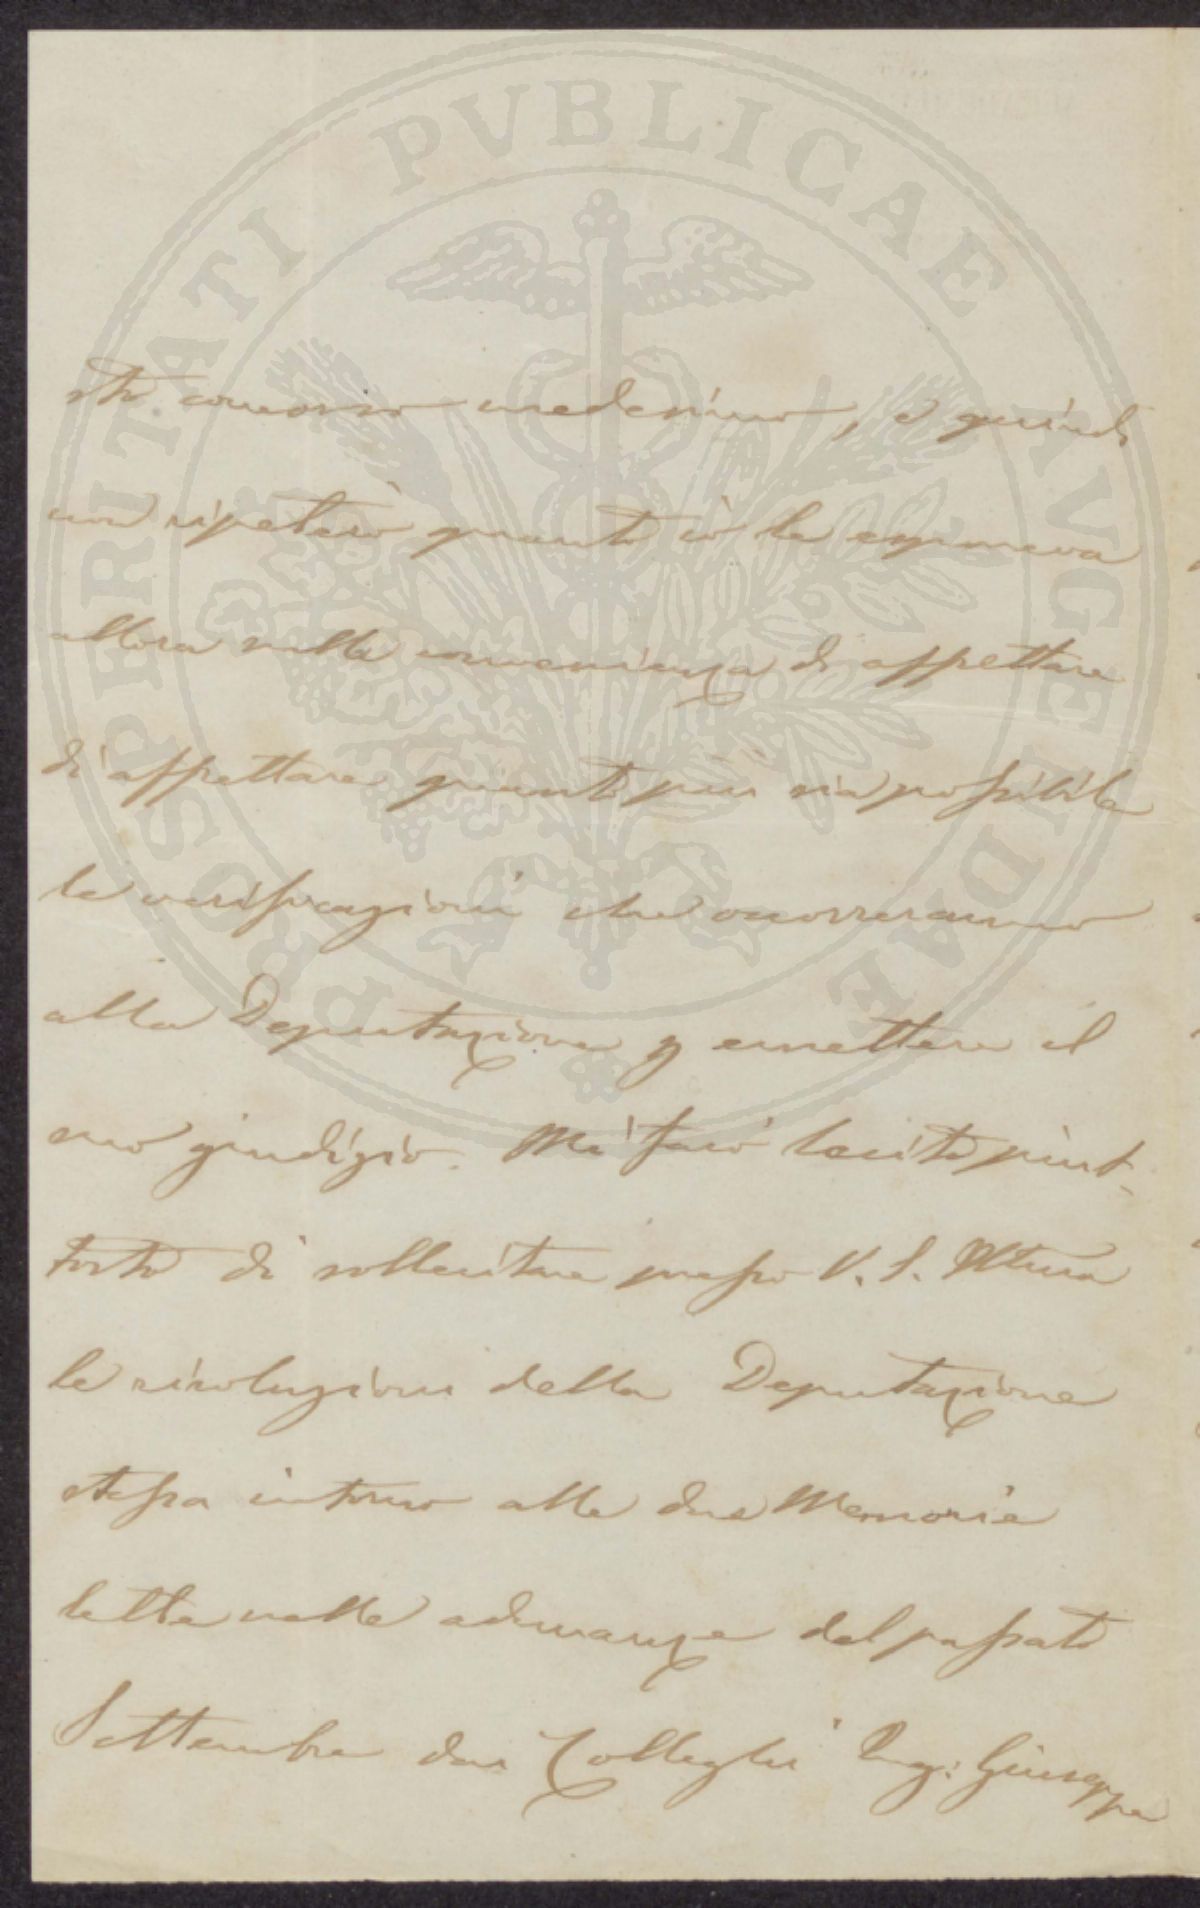 sto concorso medesimo, e quindi
non ripeterò quanto io le esprimeva
allora sulla convenienza di affrettare
di affrettare quanto più sia possibile
le verificazioni che occorreranno
alla Deputazione p emettere il
suo giudizio. Mi farò lecito piut-
tosto di sollecitare presso V. S. Illma
le risoluzioni della Deputazione
stessa intorno alle due Memorie
lette nelle adunanze del passato
Settembre dai Colleghi Ing: Giuseppe
PROSPERITATI PVBLICAE AVGENDAE